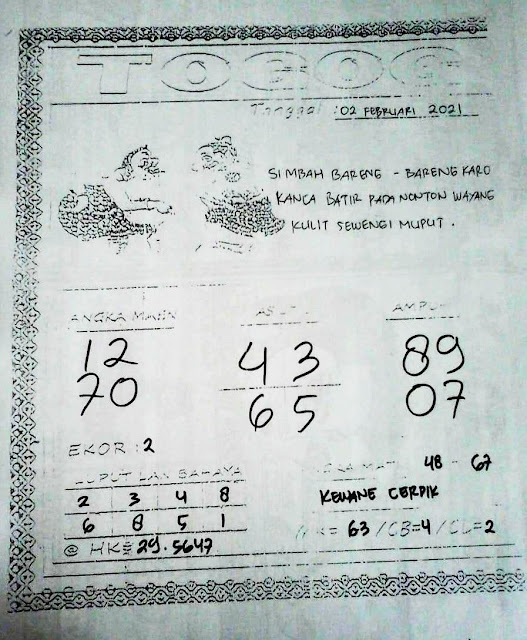 TOGOG
Tanggal : 02 FEBRUARI 2021
SIMBAH BARENG - BARENG KARO
KANCA BATIR PADA NONTON WAYANG
KULIT SEWENGI MUPUT .
ANGKA MAIN
12
70
43
65
89
07
EKOR : 2
48 - 67
LUPUT LAN BAHAYA
2 3 4 8
6 8 5 1
KEWANE CERPIK
@ HK= 29.5647
= 63 / CB=4 / CL=2